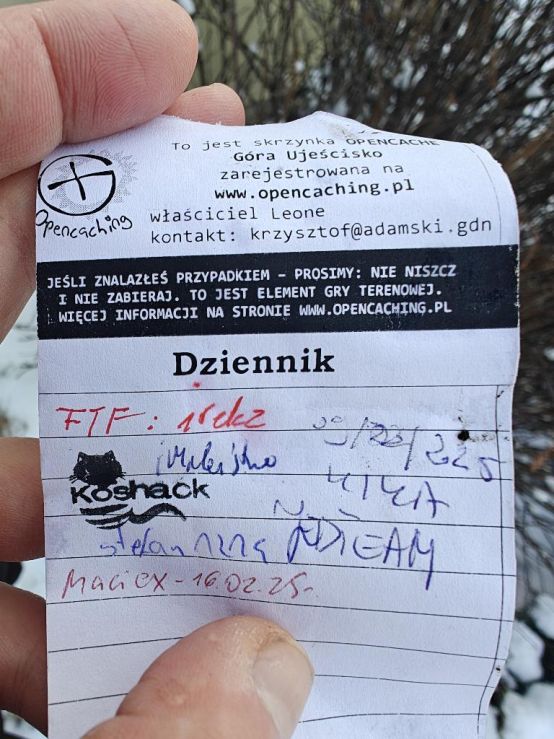 To jest skrzynka OPENCACHE
Góra Ujeścisko
zarejestrowana na
www.opencaching.pl
Opencaching
właściciel Leone
kontakt: krzysztof@adamski.gdn
JEŚLI ZNALAZŁEŚ PRZYPADKIEM - PROSIMY: NIE NISZCZ
I NIE ZABIERAJ. TO JEST ELEMENT GRY TERENOWEJ.
WIĘCEJ INFORMACJI NA STRONIE WWW.OPENCACHING.PL
Dziennik
FTF:
Koshack
stefan
Maciex - 16.02.25r.